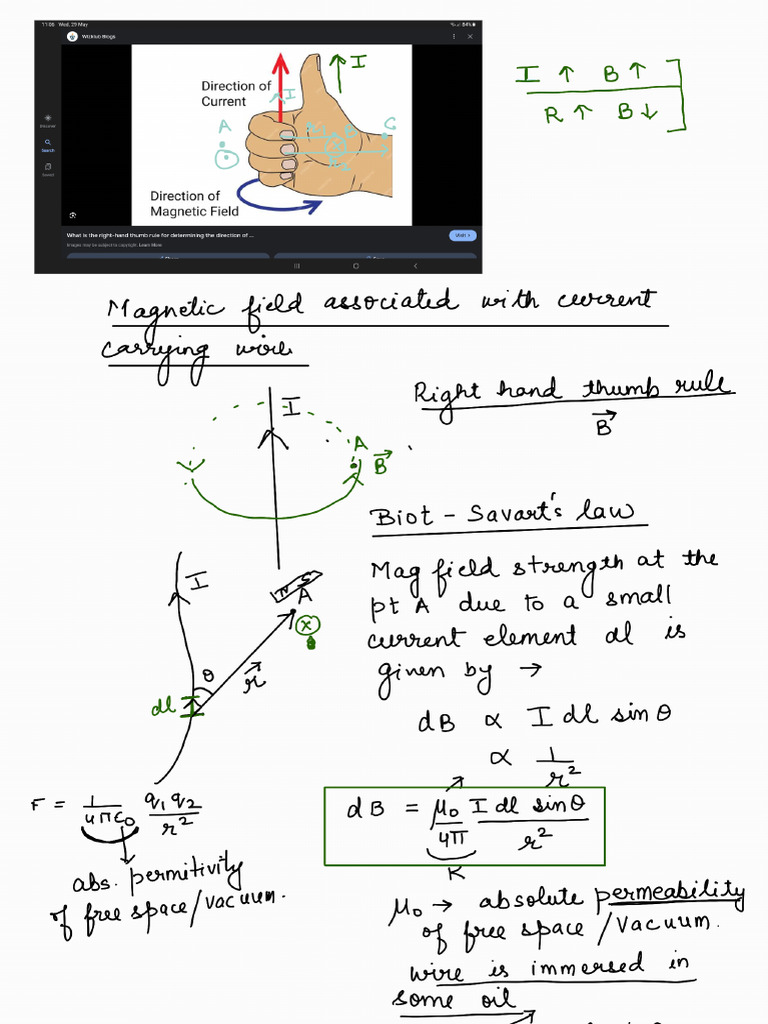 11:06 Wed, 29 May
84%
Wizklub Blogs
Direction of
Current
I
I
A
C
Direction of
Magnetic Field
Search
Saved
What is the right-hand thumb rule for determining the direction of ...
Images may be subject to copyright. Learn More
Visit >
I ↑ B ↑
R ↑ B ↓
Magnetic field associated with current
carrying wire
Right hand thumb rule
B⃗
I
A
B⃗
Biot - Savart's law
I
N S
A
Mag field strength at the
pt A due to a small
current element dl is
given by →
θ
r⃗
dl
dB ∝ I dl sinθ
∝ 1/r²
F = 1/4πϵ₀ q₁q₂/r²
dB = μ₀/4π I dl sinθ/r²
K
abs. permitivity
of free space/vacuum.
μ₀ → absolute permeability
of free space /vacuum.
wire is immersed in
some oil